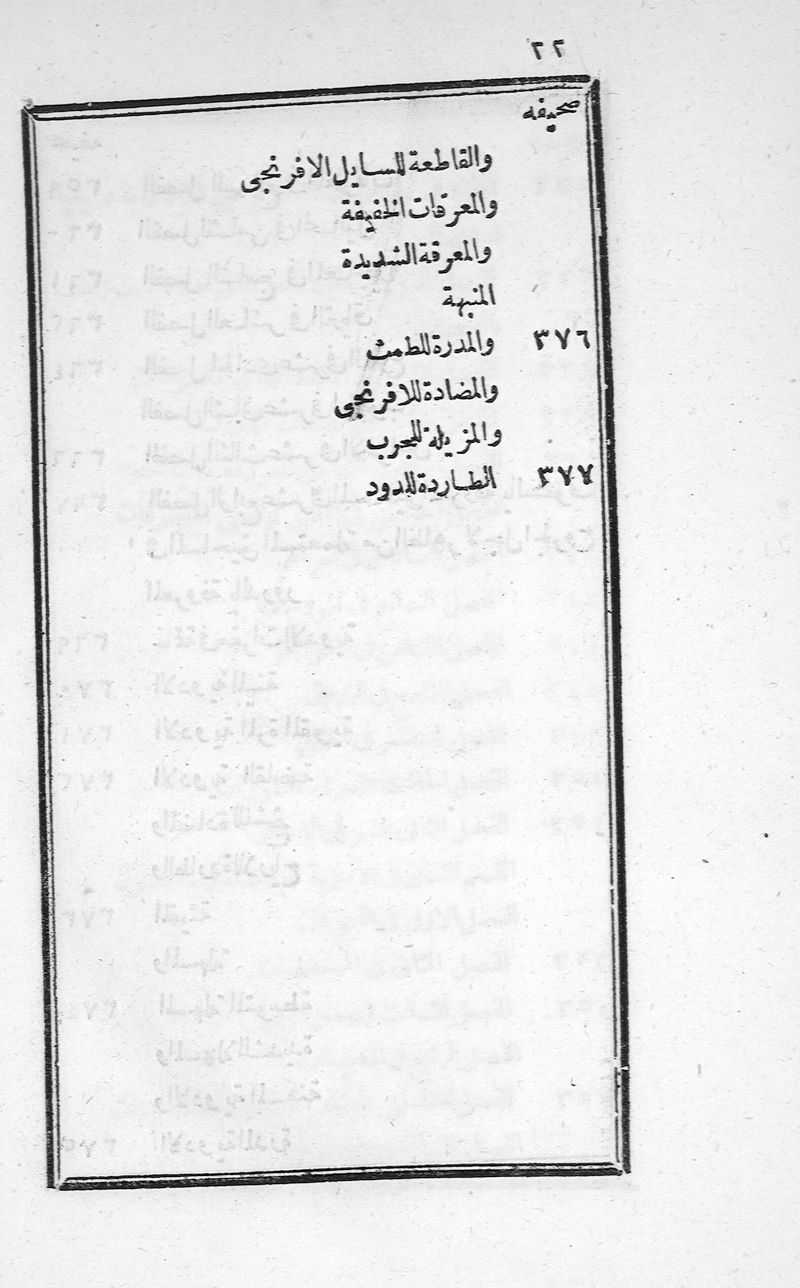 ٢٢
صحيفه
والقاطعة للسايل الافرنجى
والمعرقات الخفيفة
والمعرقة الشديدة
المنبهة
٣٧٦ والمدرة للطمث
والمضادة للافرنجى
والمزيلة للجرب
٣٧٧ الطاردة للدود